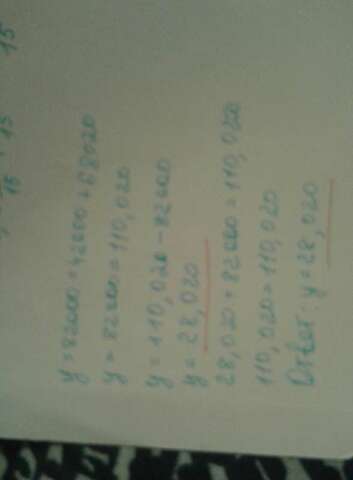 15 15
15
y=82000=42000+68020
y=82000=110,020
y=110,020-82000
y=28,020
28,020+82000=110,020
110,020=110,020
Ответ: y=28,020